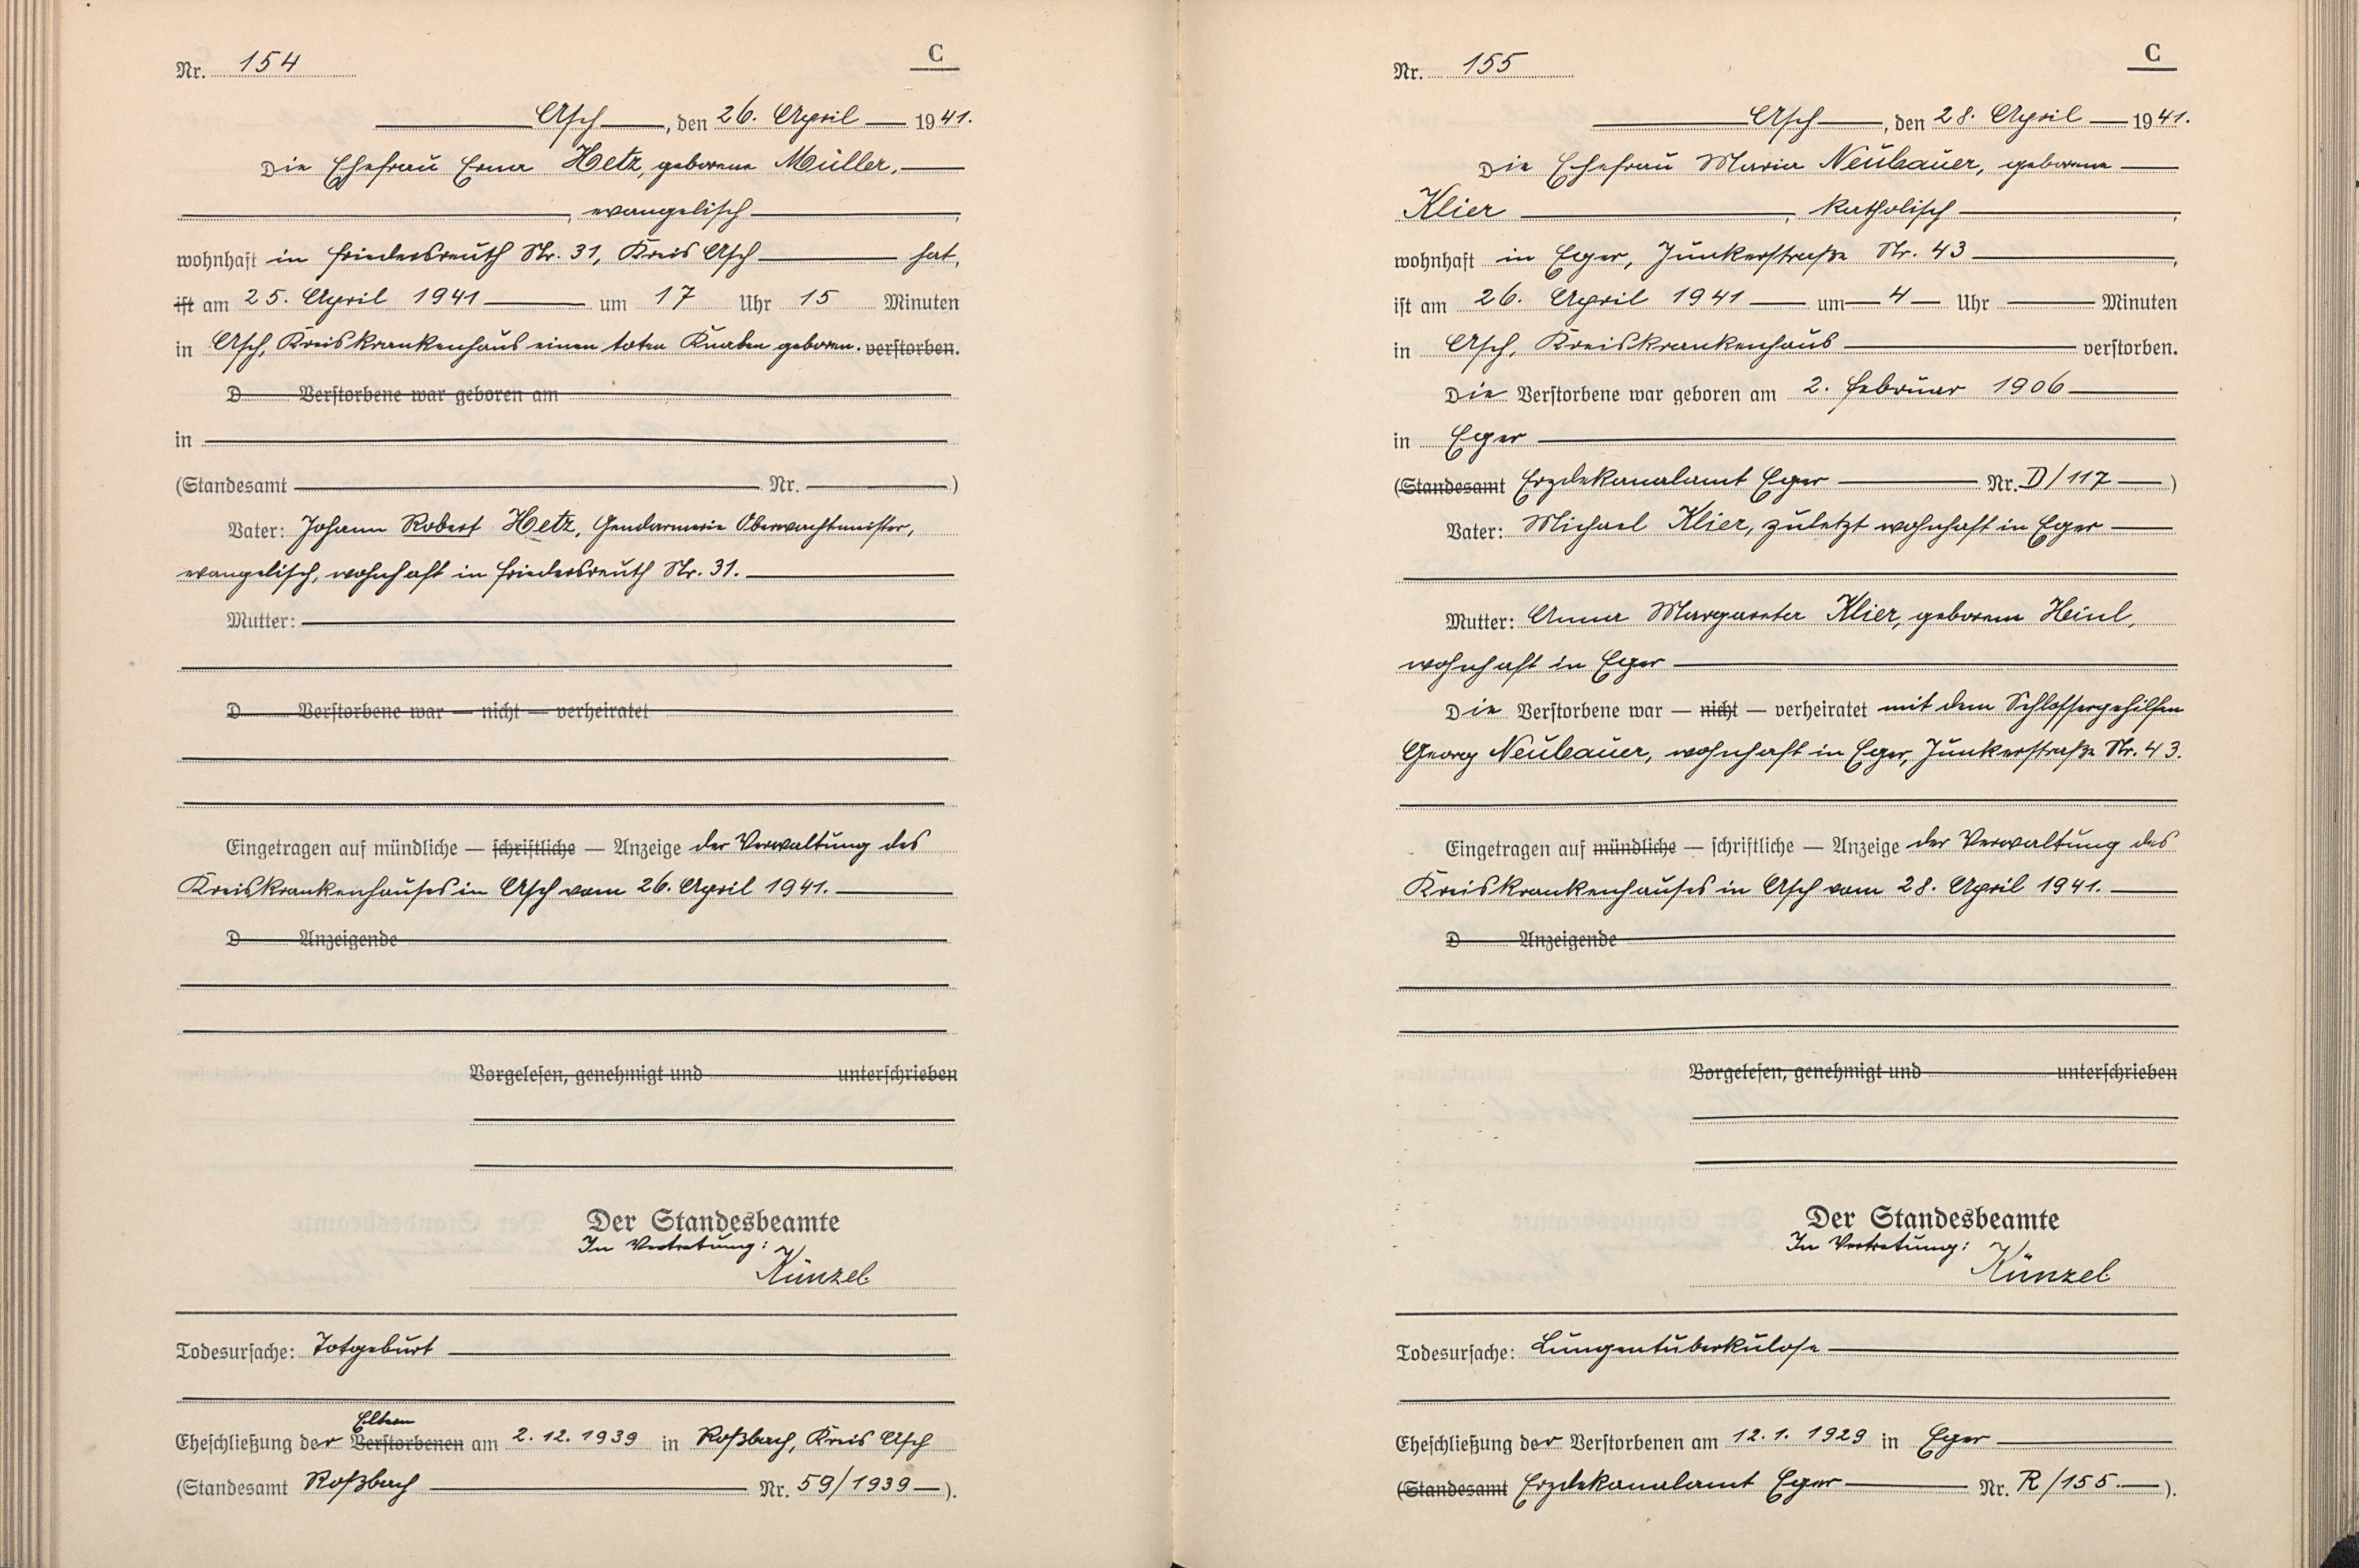 Nr. 154
C
Asch, den 26. April 1941.
Die Ehefrau Erna Hetz, geborene Müller,
, evangelisch,
wohnhaft in Friedersreuth Nr. 31, Kreis Asch hat,
ist am 25. April 1941 um 17 Uhr 15 Minuten
in Asch, Kreiskrankenhaus einen toten Knaben geboren. verstorben.
D Verstorbene war geboren am
in
(Standesamt Nr. )
Vater: Johann Robert Hetz, Gendarmerie Oberwachtmeister,
evangelisch, wohnhaft in Friedersreuth Nr. 31.
Mutter:
D Verstorbene war — nicht — verheiratet
Eingetragen auf mündliche — schriftliche — Anzeige der Verwaltung des
Kreiskrankenhauses in Asch vom 26. April 1941.
D Anzeigende
Vorgelesen, genehmigt und unterschrieben
Der Standesbeamte
In Vertretung:
Künzel
Todesursache: Totgeburt
Eltern
Eheschließung der Verstorbenen am 2.12.1939 in Roßbach, Kreis Asch
(Standesamt Roßbach Nr. 59/1939 ).
Nr. 155
C
Asch, den 28. April 1941.
Die Ehefrau Maria Neubauer, geborene
Klier, katholisch,
wohnhaft in Eger, Junkerstraße Nr. 43,
ist am 26. April 1941 um 4 Uhr Minuten
in Asch, Kreiskrankenhaus verstorben.
Die Verstorbene war geboren am 2. Februar 1906
in Eger
(Standesamt Erzdekanalamt Eger Nr. D/117 )
Vater: Michael Klier, zuletzt wohnhaft in Eger
Mutter: Anna Margareta Klier, geborene Heinl,
wohnhaft in Eger
Die Verstorbene war — nicht — verheiratet mit dem Schlossergehilfen
Georg Neubauer, wohnhaft in Eger, Junkerstraße Nr. 43.
Eingetragen auf mündliche — schriftliche — Anzeige der Verwaltung des
Kreiskrankenhauses in Asch vom 28. April 1941.
D Anzeigende
Vorgelesen, genehmigt und unterschrieben
Der Standesbeamte
In Vertretung:
Künzel
Todesursache: Lungentuberkulose
Eheschließung der Verstorbenen am 12.1.1929 in Eger
(Standesamt Erzdekanalamt Eger Nr. R/155. ).